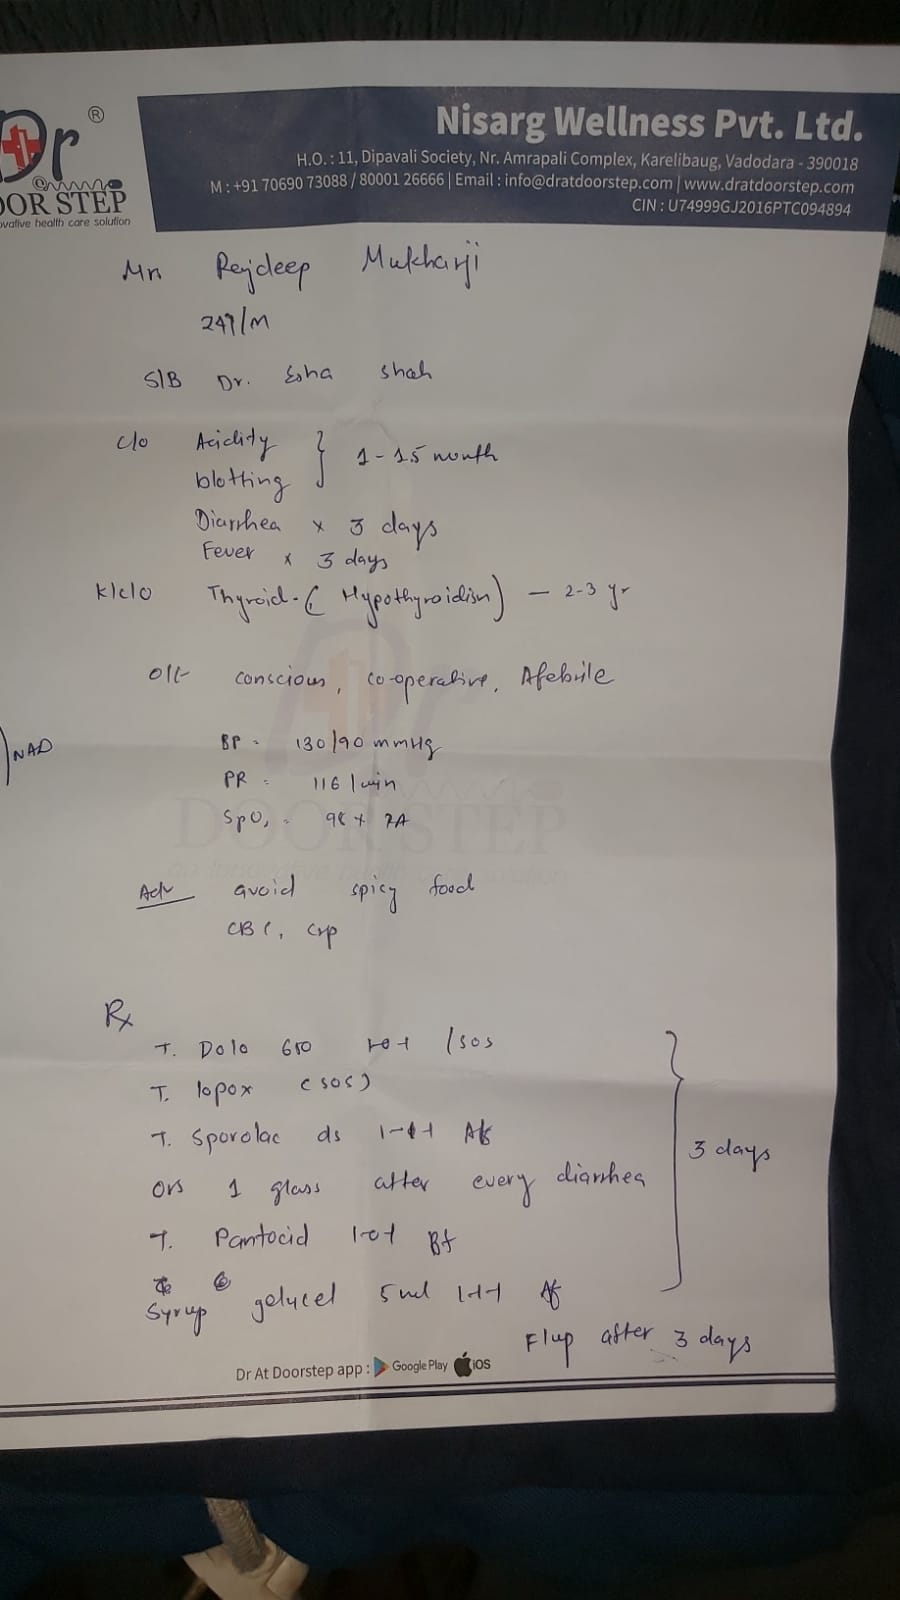 Dr ®
DOOR STEP
ovative health care solution
Nisarg Wellness Pvt. Ltd.
H.O. : 11, Dipavali Society, Nr. Amrapali Complex, Karelibaug, Vadodara - 390018
M : +91 70690 73088 / 80001 26666 | Email : info@dratdoorstep.com | www.dratdoorstep.com
CIN : U74999GJ2016PTC094894
Rajdeep Mukharji
/M
S/B Dr. Esha Shah
c/o Acidity
blotting } 1-1.5 month
Diarrhea x 3 days
Fever x 3 days
k/c/o Thyroid - (Hypothyroidism) - 2-3 yr
conscious, co-operative, Afebrile
NAD
BP - 130/90 mmHg
PR - 116/min
SpO2 -
DOOR STEP
Adv avoid spicy food
CBC, Crp
Rx
T. Dolo 650 /sos
T. lopox (sos)
T. Sporolac ds
ors 1 glass after every diarrhea
3 days
T. Pantocid 1-0-1 Bf
Syrup 5 ml Af
F/up after 3 days
Dr At Doorstep app : Google Play iOS